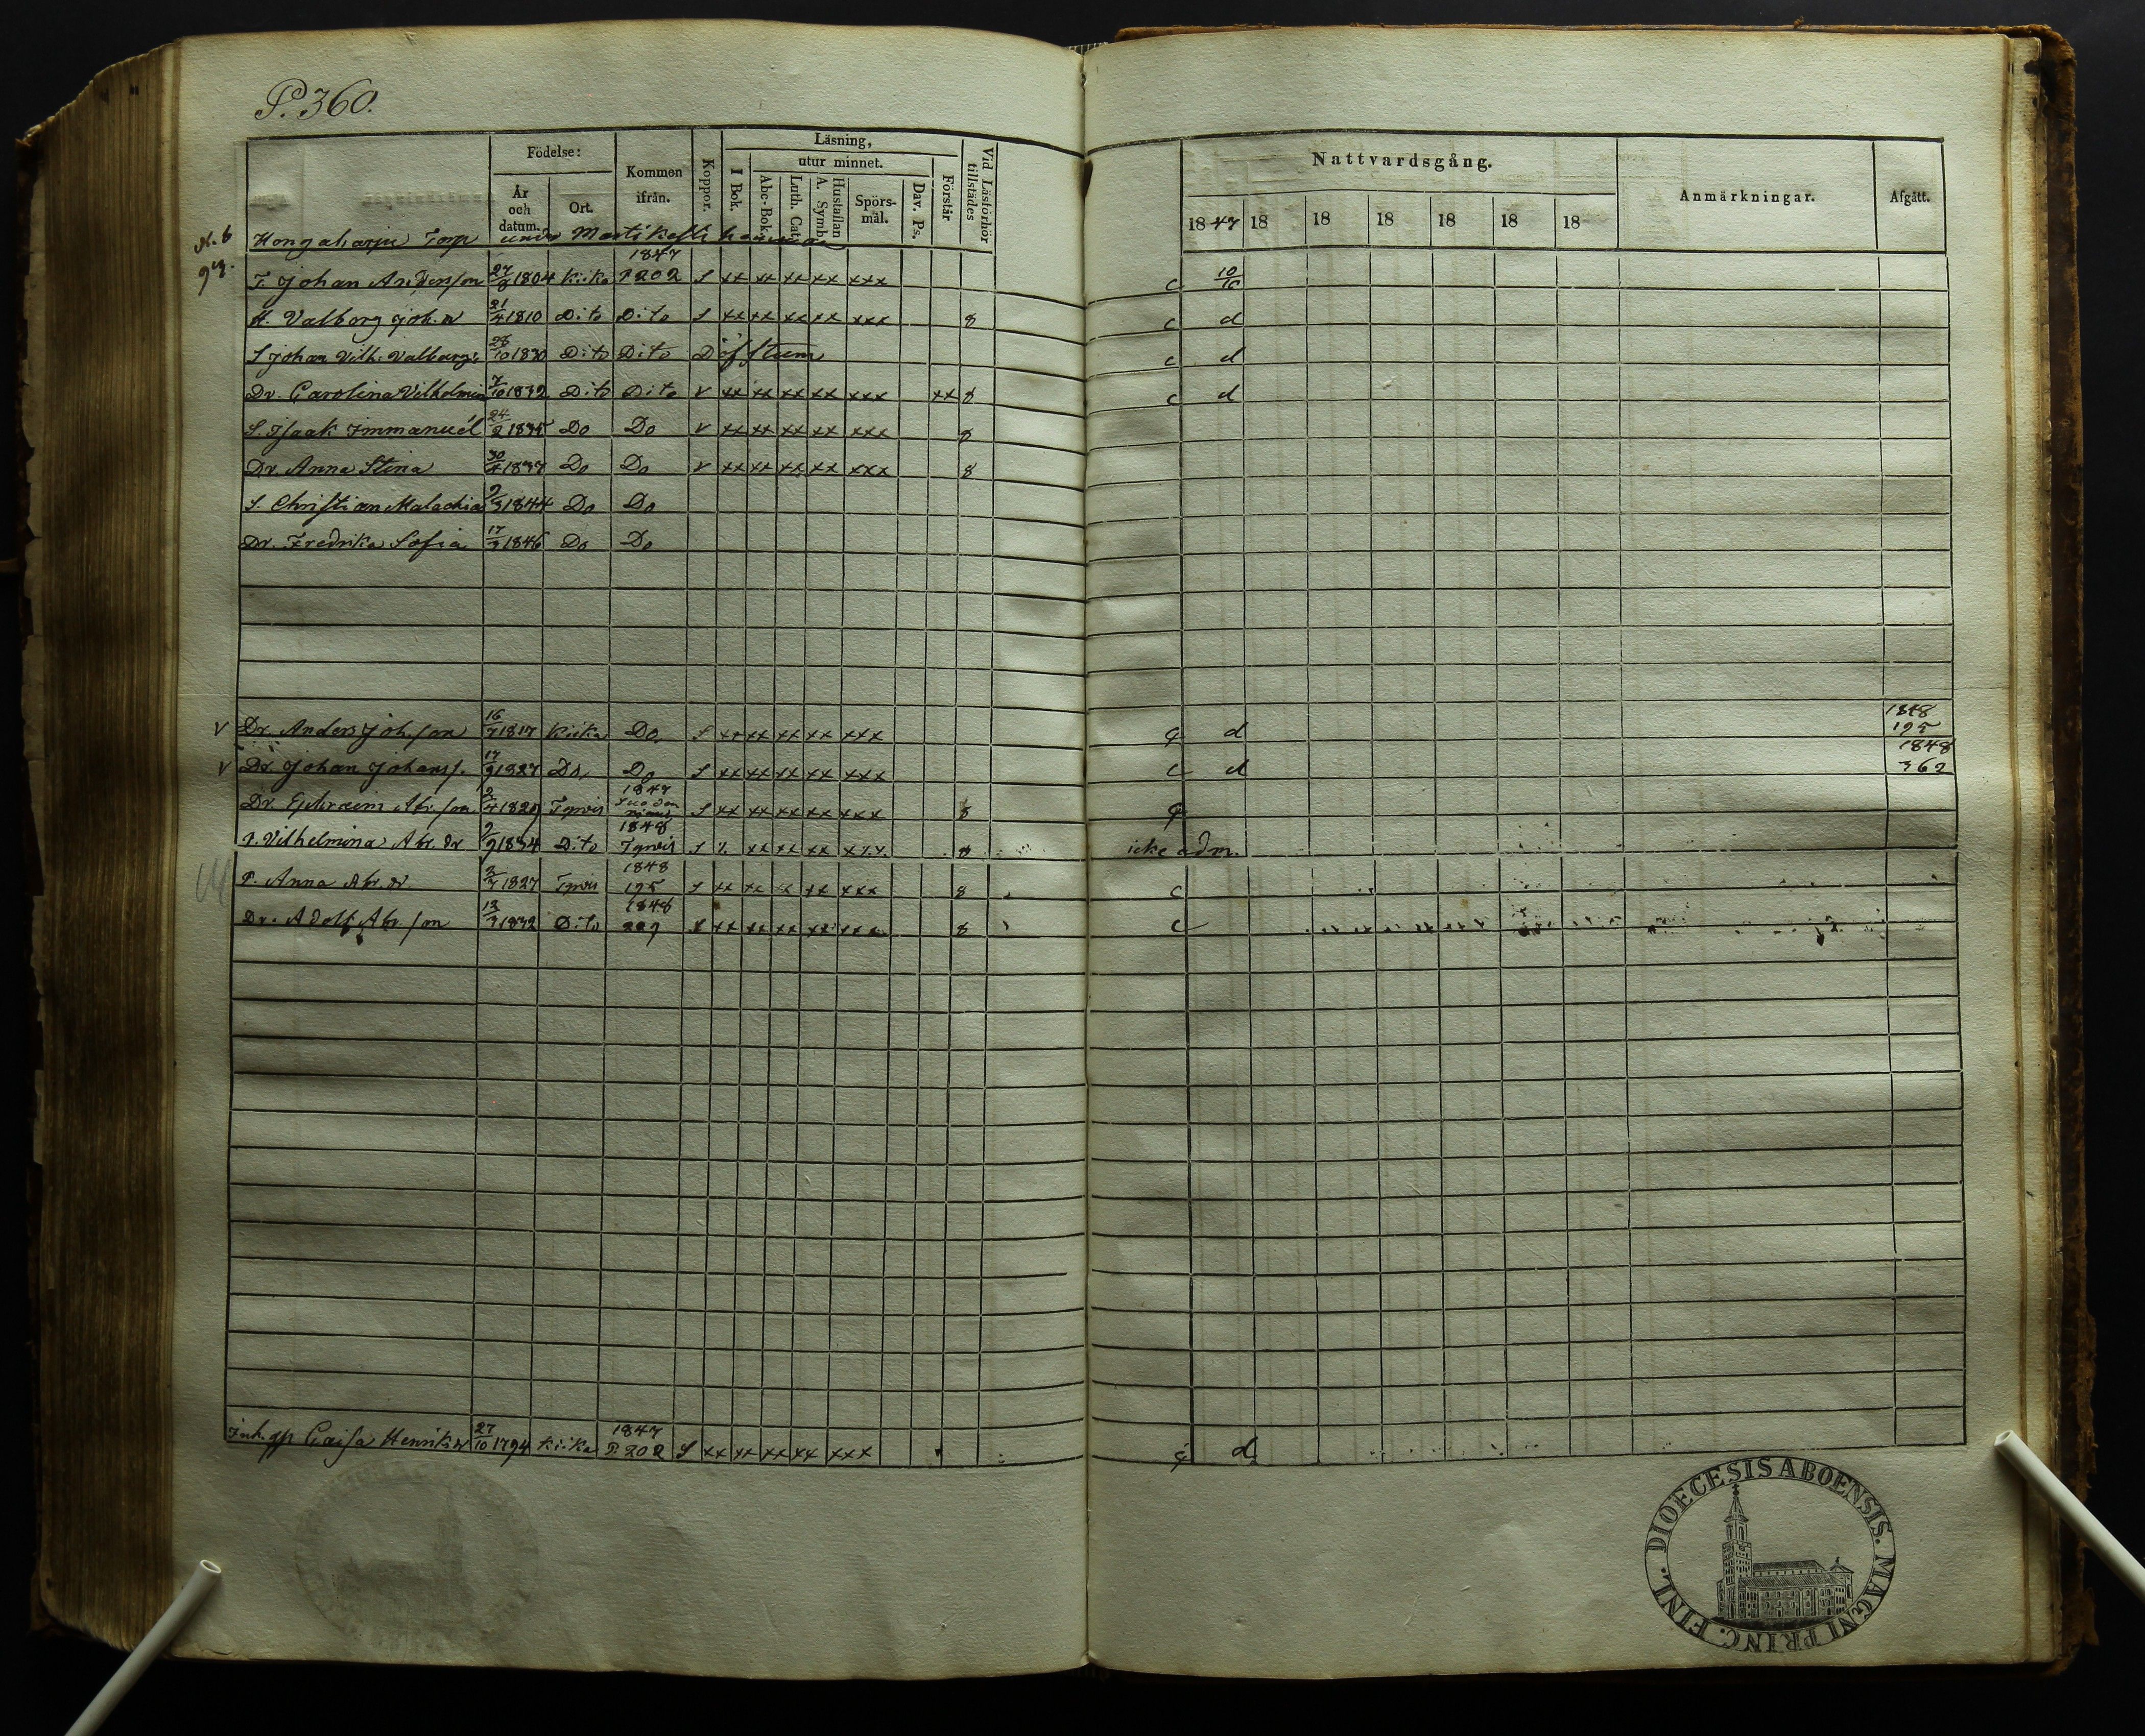 P. 360.
Födelse: Kommen ifrån. Koppor. Läsning, Vid Läsförhör tillstädes Nattvardsgång. Anmärkningar. Afgått.
År och datum. Ort. I Bok. utur minnet. Förstår
Abc-Bok. Luth. Cat. A. Symb. Hustaflan Spörsmål. Dav. Ps.
1847 18 18 18 18 18 18
Hongaharju Torp under
1847
T. Johan Andersson 27 1804 Kiika P 202 S xx xx xx xx xxx c 10/10
H. Valborg Joh. dr 21/4 1810 Dito Dito S xx xx xx xx xxx 8 c d
S Johan Vilh. Valbergs 28/10 1830 Dito Dito Döfstum c d
Dr. Carolina Vilhelmina 7/10 1832 Dito Dito v xx xx xx xx xxx xx 8 c d
S. Isaak Immanuel 24/2 1835 Do Do v xx xx xx xx xxx 8
Dr. Anna Stina 30/4 1837 Do Do v xx xx xx xx xxx 8
S. Christian Malachias 9/3 1844 Do Do
Dr. Fredrika Sofia 17/3 1846 Do Do
1848
v Dr. Anders Joh.son 16/7 1817 Kiika Do S xx xx xx xx xxx d 195
1848
v Dr. Johan Johanss. 17/9 1827 Do Do S xx xx xx xx xxx c d 362
1847
Dr. Ephraim Abr.son 2/4 1829 Tyrvis S xx xx xx xx xxx 8
1848
P. Vilhelmina Abr. dr 9/9 1834 Dito Tyrvis S xx xx xx 8 icke adm.
1848
P. Anna Abr. dr 1827 Tyrvis 195 S xx xx xx xxx 8 c
1848
Dr. Adolf Abr.son 13/3 1832 Dito 209 xx xx xx xx xxx 8 c
1847
Inh. Caisa Henrik. dr 27/10 1794 Kiika P. 202 S xx xx xx xx xxx d
DIOECESIS ABOENSIS. MAGNI PRINC. FINL.